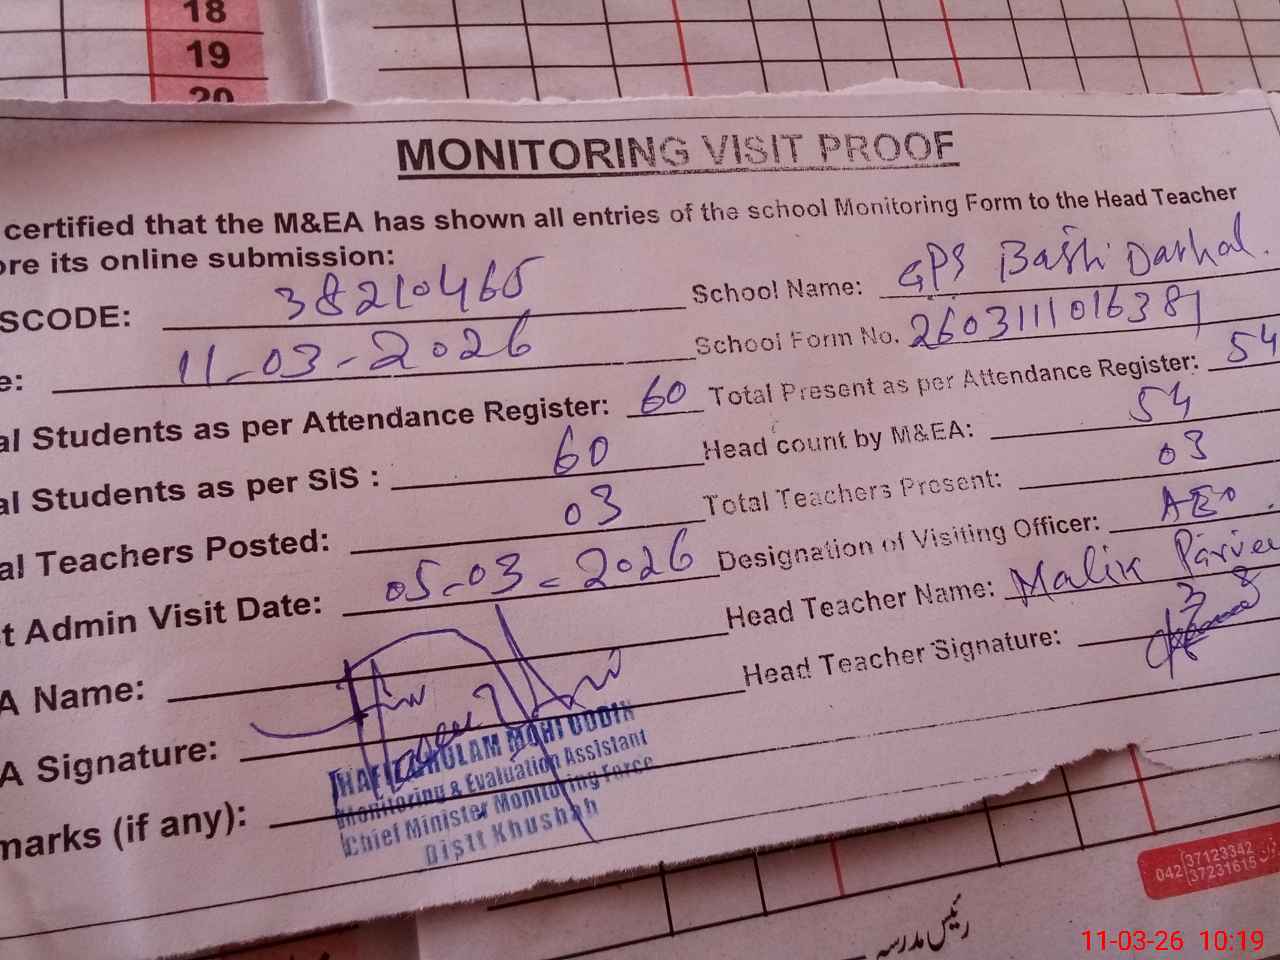 18
19
20
MONITORING VISIT PROOF
certified that the M&EA has shown all entries of the school Monitoring Form to the Head Teacher
ore its online submission:
SCODE: 38210465 School Name: GPS Basti Darhal.
e: 11-03-2026 School Form No. 2603111016381
al Students as per Attendance Register: 60 Total Present as per Attendance Register: 54
al Students as per SIS : 60 Head count by M&EA: 54
al Teachers Posted: 03 Total Teachers Present: 03
t Admin Visit Date: 05-03-2026 Designation of Visiting Officer: AEO
A Name: Head Teacher Name: Malik Parvee
A Signature: Head Teacher Signature:
marks (if any):
HAFIZ GHULAM MOHI UDDIN
Monitoring & Evaluation Assistant
Chief Minister Monitoring Force
Distt Khushab
042 37123342
37231615
رئیس مدرسہ
11-03-26 10:19